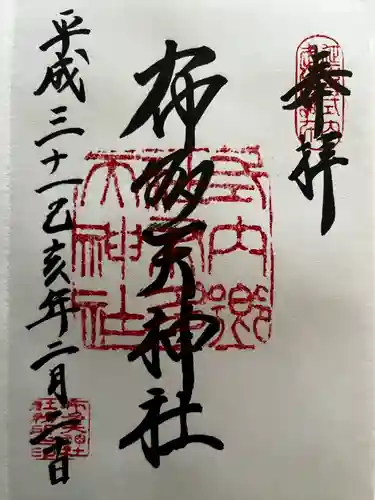 奉拝
布多天神社
平成三十一己亥年二月二十日
式内郷
天神社